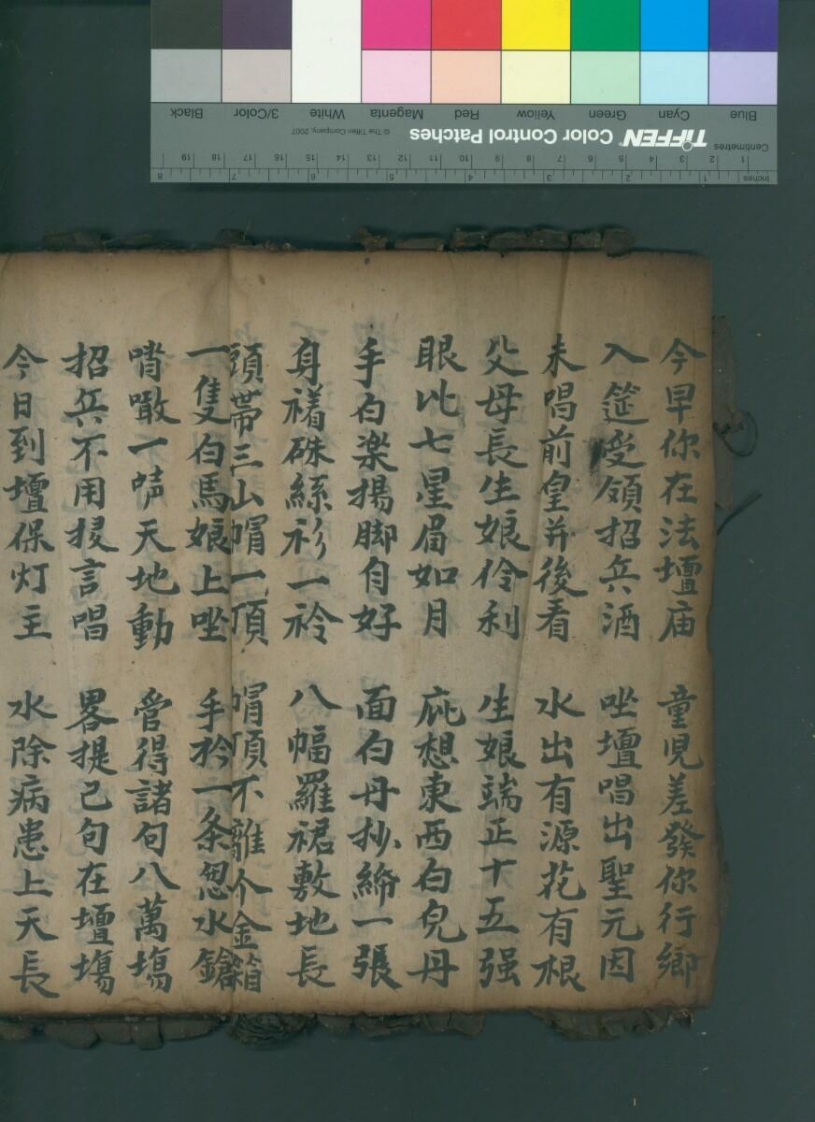 Blue Cyan Green Yellow Red Magenta White 3/Color Black
Centimetres TIFFEN Color Control Patches © The Tiffen Company, 2007
1 2 3 4 5 6 7 8 9 10 11 12 13 14 15 16 17 18 19
Inches 1 2 3 4 5 6 7 8
今早你在法壇庙 童児差發你行鄉
入筵受領招兵酒 唑壇唱出聖元因
未唱前皇并後看 水出有源花有根
父母長生娘伶利 生娘端正十五强
眼比七星眉如月 庇想東西白皃丹
手白楽揚脚自好 面白丹抄締一張
身𧝁硃絲衫一衿 八幅羅裙敷地長
頭带三山帽一頂 帽頂不離个金箱
一隻白馬娘上唑 手衿一条忽水鎗
噴噉一声天地動 管得諸句八萬塲
招兵不用多言唱 畧提己句在壇塲
今日到壇保灯主 水除病患上天長